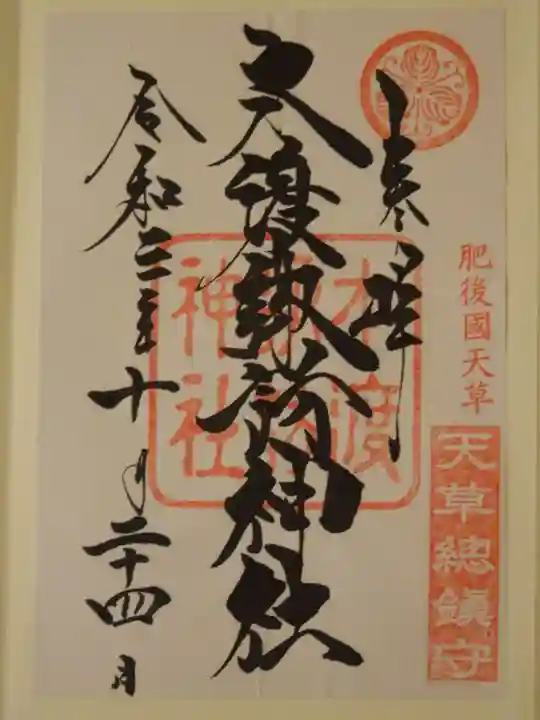 奉拝
肥後國天草
天草總鎮守
本渡諏訪神社
本渡諏訪神社
令和二年十月二十四日